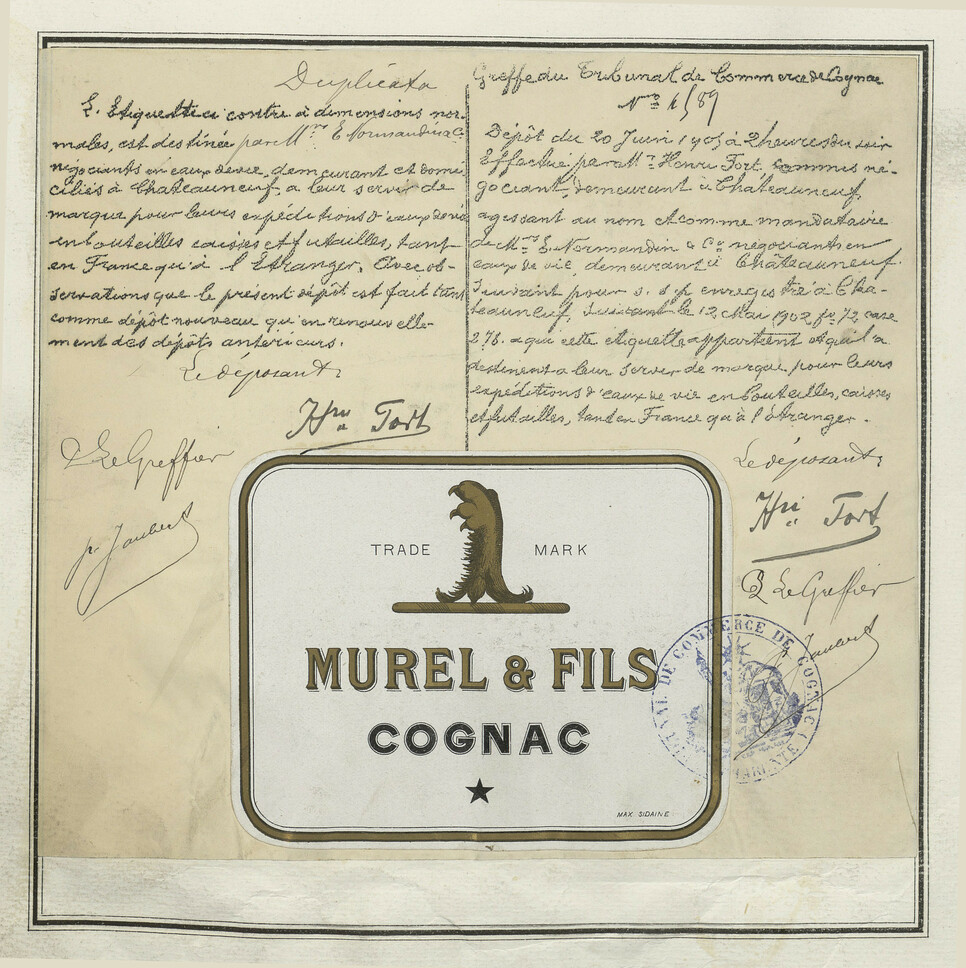 Duplicata
L'Etiquette ci contre à dimensions nor-
males, est destinée par Mrs E. Normandin & Co
négociants en eaux de vie, demeurant et domi-
ciliés à Chateauneuf, a leur servir de
marque pour leurs expéditions d'eaux de vie
en bouteilles caisses et futailles, tant
en France qu'à l'Etranger. Avec ob-
servations que le présent dépôt est fait tant
comme dépôt nouveau qu'en renouvelle-
ment des dépôts antérieurs.
Le déposant:
Hri Fort
P. Le Greffier
pr Jaubert
Greffe du Tribunal de Commerce de Cognac
Dépôt du 20 Juin 1905 à 2 heures du soir
Effectué par Mr Henri Fort, commis né-
gociant, demeurant à Chateauneuf,
agissant au nom et comme mandataire
de Mrs E. Normandin & Co négociants en
eaux de vie, demeurant à Châteauneuf.
Suivant pour s. s. p. enregistré à Cha-
teauneuf, le 12 Mai 1902 fo 72 case
276. a qui cette étiquette appartient et qui la
destinent a leur servir de marque pour leurs
expéditions d'eaux de vie en bouteilles, caisses
et futailles, tant en France qu'à l'étranger.
Le déposant:
Hri Fort
P. Le Greffier
Jaubert
TRADE MARK
MUREL & FILS
COGNAC
MAX SIDAINE
TRIBUNAL DE COMMERCE DE COGNAC (CHARENTE)